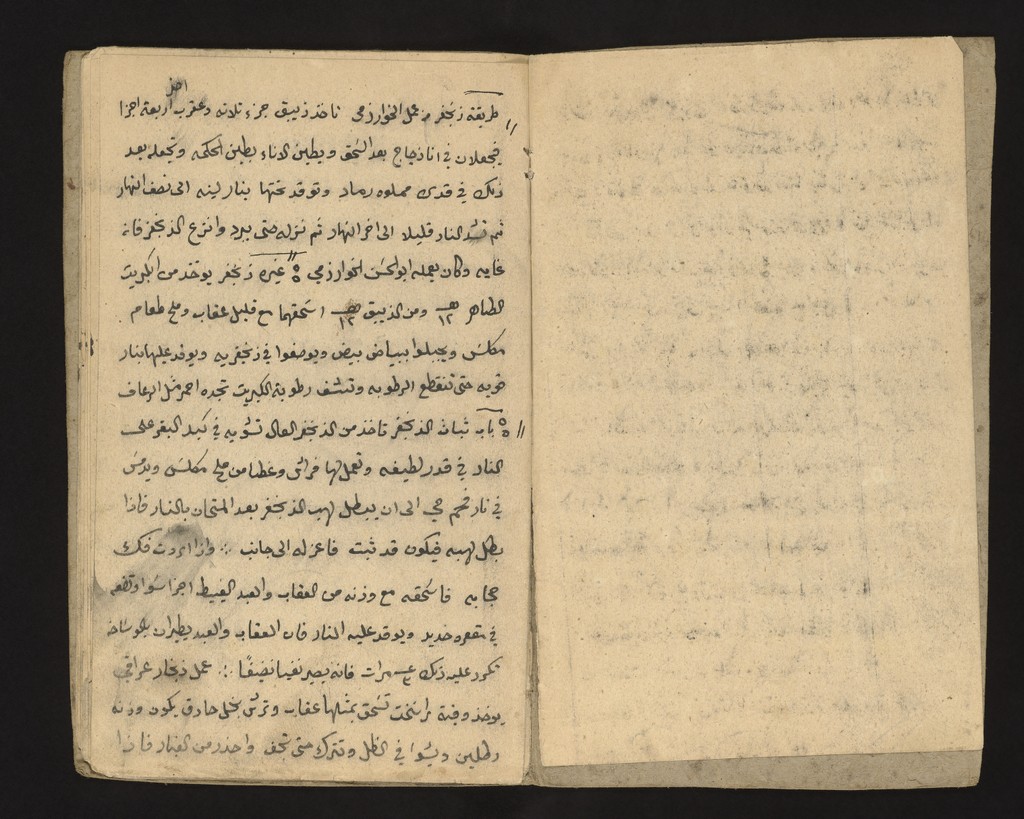 اخر
طريقة زنجفر من عمل الخوارزمي تاخذ زيبق جزء تلاته وعقرب اربعة اجزا
يجعلان في انا زجاج بعد السحق ويطين الاناء بطين الحكمه وتجعله بعد
ذلك في قدر مملوه رماد وتوقد تحتها بنار لينه الى نصف النهار
ثم تشد النار قليلا الى اخر النهار ثم تنزله حتى يبرد وانزع الزنجفر فانه
غايه وكان يعمله ابو الحسن الخوارزمي غيره زنجفر يوخذ من الكبريت
الطاهر ١٢ ومن الزيبق ١٢ اسحقهما مع قليل عقاب وملح طعام
مكلس ويجبلوا ببياض بيض ويوضعوا في زنجفريه ويوقد عليها بنار
قويه حتى تنقطع الرطوبه وتنشف رطوبة الكبريت تجده احمر مثل الرعاف
باب ثبات الزنجفر تاخذ من الزنجفر العال تشويه في كبد البقر على
النار في قدر لطيفه وتعمل لها فراش وغطا من ملح مكلس ويدمس
في نار فحم حي الى ان يبطل لهب الزنجفر بعد امتحان بالنار فاذا
بطل لهبه فيكون قد ثبت فاعزله الى جانب واذا اردت فك
حجابه فاسحقه مع وزنه من العقاب والعبد الغبيط اجزا سوا وتضعه
في مقعره حديد ويوقد عليه النار فان العقاب والعبد يطيران بالاوساخ
تكرر عليه ذلك مرات فانه يصير نقيا نضيفا عمل زنجار عراقي
يوخذ وقية راسخت تسحق بمثلها عقاب وترش بخل حادق يكون وزنه
رطلين ويشوا في الظل وتترك حتى تجف واحذر من الغبار فاذا